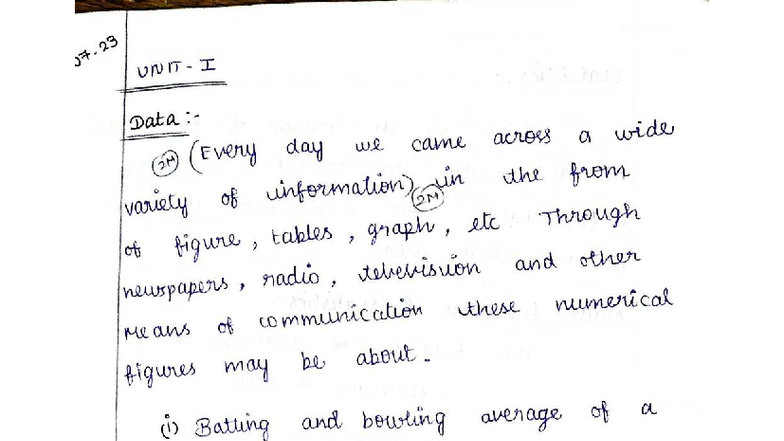 07.23
UNIT - I
Data :-
2M (Every day we came across a wide
variety of information) 2M in the from
of figure, tables, graph, etc Through
newspapers, radio, television and other
Means of communication these numerical
figures may be about.
(i) Batting and bowling average of a